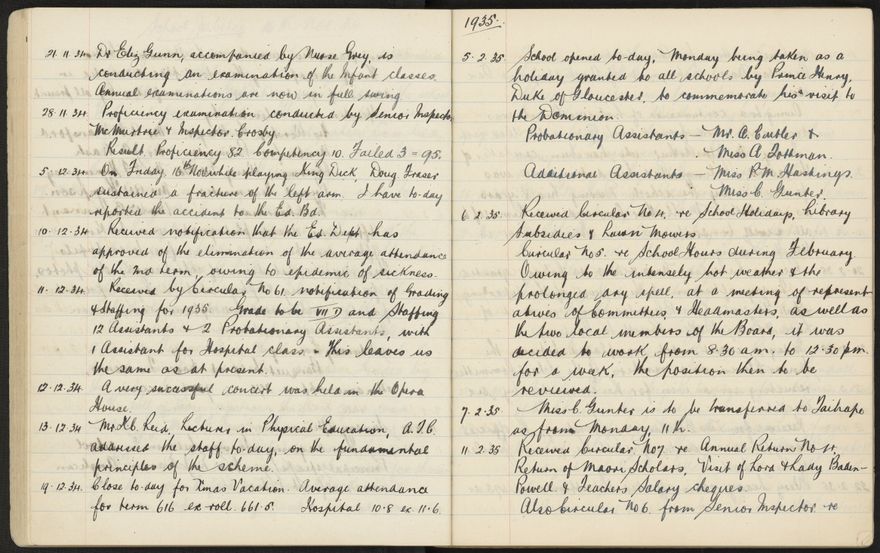 21.11.34 Dr Eliz Gunn, accompanied by Nurse Grey, is
conducting an examination of the Infant classes.
Annual examinations are now in full swing
28.11.34. Proficiency examination conducted by Senior Inspector
McMurtrie & Inspector Crosby.
Result. Proficiency 82 Competency 10. Failed 3 = 95.
5.12.34. On Friday 16th Nov. while playing King Dick, Doug Fraser
sustained a fracture of the left arm. I have to-day
reported the accident to the Ed. Bd.
10.12.34 Received notification that the Ed. Dept. has
approved of the elimination of the average attendance
of the 2nd term, owing to epidemic of sickness.
11.12.34. Received by Circular No 61 notification of Grading
& Staffing for 1935. Grade to be VII D and Staffing
12 Assistants & 2 Probationary Assistants, with
1 Assistant for Hospital class. This leaves us
the same as at present.
12.12.34. A very successful concert was held in the Opera
House.
13.12.34 Mr Reid, Lecturer in Physical Education, A.T.C.
addressed the staff to-day, on the fundamental
principles of the scheme.
19.12.34. Close to-day for Xmas Vacation. Average attendance
for term 616 ex roll 661.5. Hospital 10.8 ex 11.6.
1935.
5.2.35 School opened to-day, Monday being taken as a
holiday granted to all schools by Prince Henry,
Duke of Gloucester, to commemorate his visit to
the Dominion.
Probationary Assistants — Mr. A. Cutler &
Miss A. Tottman.
Additional Assistants — Miss P. M. Hastings.
Miss C. Gunter.
6.2.35 Received Circular No 4, re School Holidays, Library
Subsidies & Lawn Mowers
Circular No 5. re School Hours during February
Owing to the intensely hot weather & the
prolonged dry spell, at a meeting of represent-
atives of Committees, & Headmasters, as well as
the two local members of the Board, it was
decided to work from 8.30 am. to 12.30 pm.
for a week, the position then to be
reviewed.
7.2.35 Miss C. Gunter is to be transferred to Taihape
as from Monday 11th.
11.2.35 Received Circular No 7 re Annual Return No 4.
Return of Maori Scholars, Visit of Lord & Lady Baden-
Powell & Teachers Salary cheques.
Also Circular No 6. from Senior Inspector re